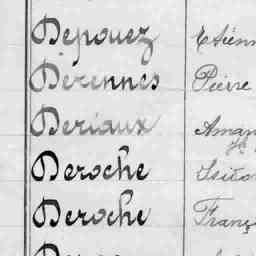 Depouez Etienn
Derennes Pierre
Deriaux Aman
Deroche Isido
Deroche Franç